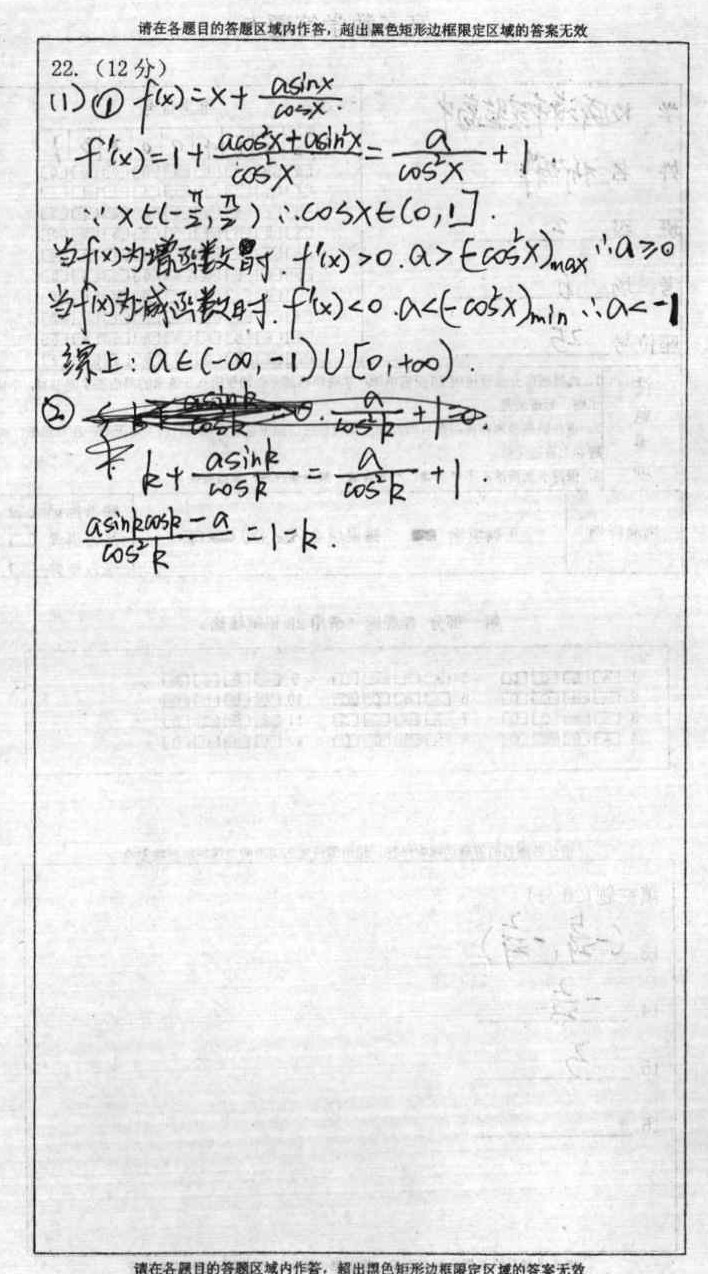 请在各题目的答题区域内作答，超出黑色矩形边框限定区域的答案无效
22.（12分）
(1) ① f(x)=x+\frac{asinx}{cosx}.
f'(x)=1+\frac{acos²x+asin²x}{cos²x}=\frac{a}{cos²x}+1.
∵x∈(-\frac{π}{2},\frac{π}{2}) ∴cosx∈(0,1].
当f(x)为增函数时. f'(x)>0. a>(-cos²x)max ∴a≥0
当f(x)为减函数时. f'(x)<0. a<(-cos²x)min ∴a<-1
综上: a∈(-∞,-1)∪[0,+∞).
②
k+\frac{asink}{cosk}=\frac{a}{cos²k}+1.
\frac{asinkcosk-a}{cos²k}=1-k.
请在各题目的答题区域内作答，超出黑色矩形边框限定区域的答案无效